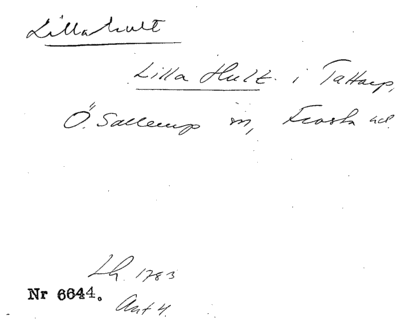 Lillahult
Lilla Hult. i Tattarp,
Ö. Sallerup sn, Frosta hd.
Lh. 1783
Nr 6644. Akt 4.